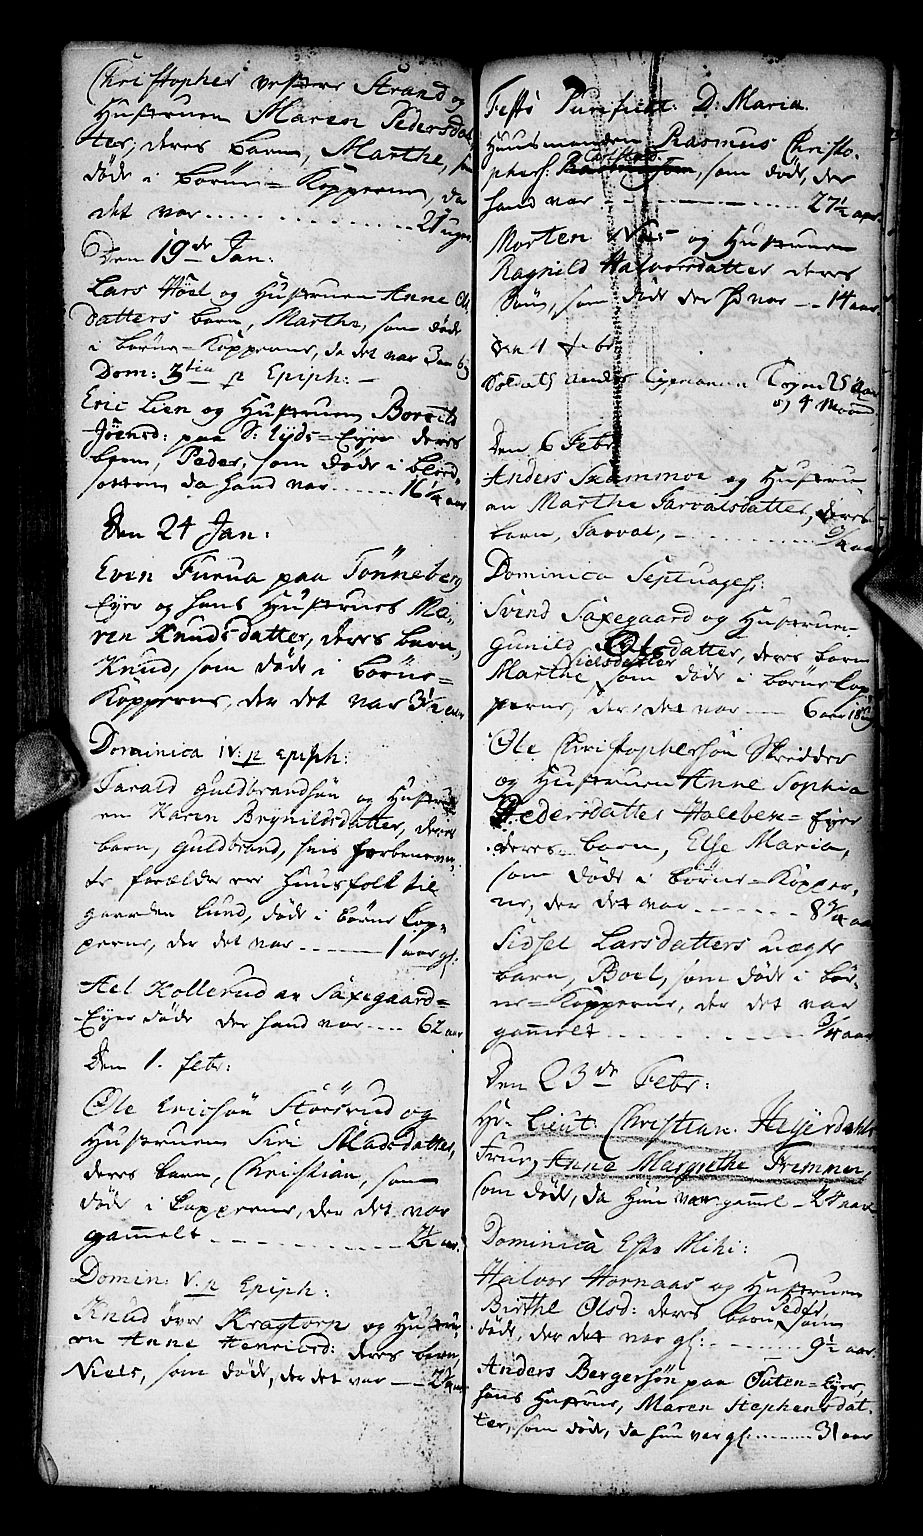 Christopher vestre Strand og
Hustruen Maren Pedersdat-
ter, deres barn, Marthe, som
døde i børne-Kopperne, da
det var 21 uger
Den 19de Jan:
Lars Høel og Hustruen Anne Ols-
datters barn, Marthe, som døde
i børne-Kopperne, da det var 3 aar
Dom: 3tia p Epiph:
Eric Lien og Hustruen Borrild
Joensd: paa deres
barn, Peder, som døde i blod-
sotten da hand var 16 1/4 aar
Den 24 Jan:
Even Furua paa Tønneberg
Eyer og hans Hustrues Ma-
ren Knudsdatter, deres barn,
Knud, som døde i børne-
Kopperne, der det var 3 1/2 aar
Dominica IV. p Epiph:
Tarald Guldbrandsøn og Hustru-
en Karen Brynildsdatter, deres
barn, Guldbrand, hvis forbenevn-
te forældre ere Huusfolk til
gaarden Lund, døde i børne Kop-
perne, der det var 1 aar gl:
Axl Kollerud av Saxegaard-
Eyer døde der hand var 62 aar
Den 1. febr:
Ole Ericsøn Storsrud og
Hustruen Siri Madsdatter,
deres barn, Christian, som
døde i Kopperne, der det var
gammelt 2 1/2 aar.
Domin: V. p Epiph:
Knud øvre Kragtorp og Hustru-
en Anne Henricsd: deres barn
Niels, som døde, der det var 2 3/4 aar
Festo Purificat: D: Maria.
Huusmanden Rasmus Christo-
phers: som døde, der
hand var 27 1/2 aar
Morten Næs og Hustruen
Ragnild Halvorsdatter deres
Søn, som døde der hand var 14 aar
Den 1 Febr
Soldath 25 Aar
og 4 Maan
Den 6 Febr
Anders Skammoe og Hustru-
en Marthe Tarvalsdatter, deres
barn, Tarval, 3/4 aar
Dominica Septuages:
Svend Saxegaard og Hustruen
Gunild Olsdatter, deres barn
Marthe Nielsdatter som døde i børne Kop-
perne, der det var 6 aar 18
Ole Christophersøn Skredder
og Hustruen Anne Sophia
Pedersdatter Haleben-Eyer
deres barn, Else Maria,
som døde i børne-Kopper-
ne, der det var 8 3/4 aar
Sidsel Larsdatters uægte
barn, Boel, som døde i bør-
ne-Kopperne, der det var
gammelt 3/4 aar
Den 23de Febr:
Hr. Lieut: Christian Heyerdahls
Frue, Anne Margrethe Tremmer,
som døde, da hun var gammel 24 aar
Dominica Esto Mihi:
Halvor Hornaas og Hustruen
Birthe Olsd: deres barn Peder som
døde, der det var gl: 9 1/2 aar.
Anders Bergersøn paa Outen-Eyer,
hans Hustrue, Maren Stephensdat-
ter, som døde, da hun var gl: 31 aar